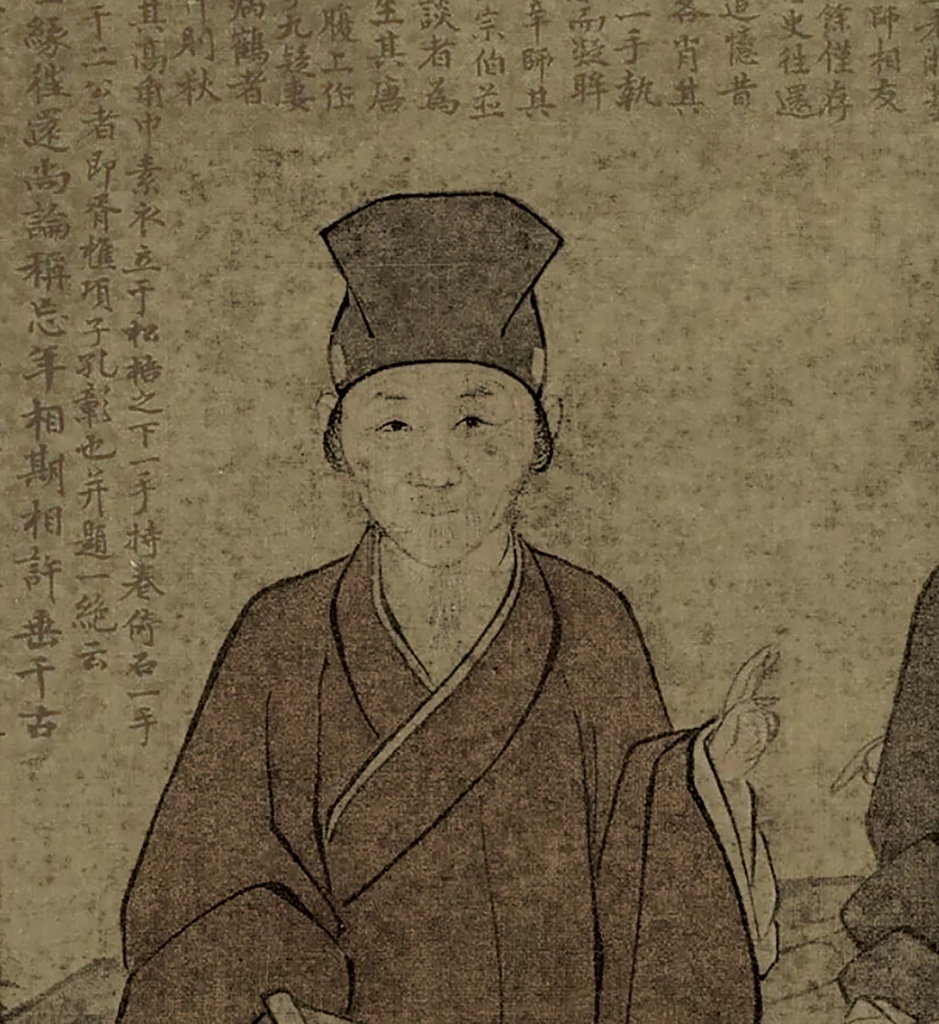 師相友
餘僅存
史往還
追憶昔
各肖其
一手執
而凝眸
辛師其
宗伯並
談者為
生其唐
腹上作
九疑婁
病鶴者
則秋
其高角巾素衣立于松栝之下一手持卷倚石一手
十二公者即胥樵項子孔彰也并題一絕云
緣往還尚論稱忘年相期相許垂千古